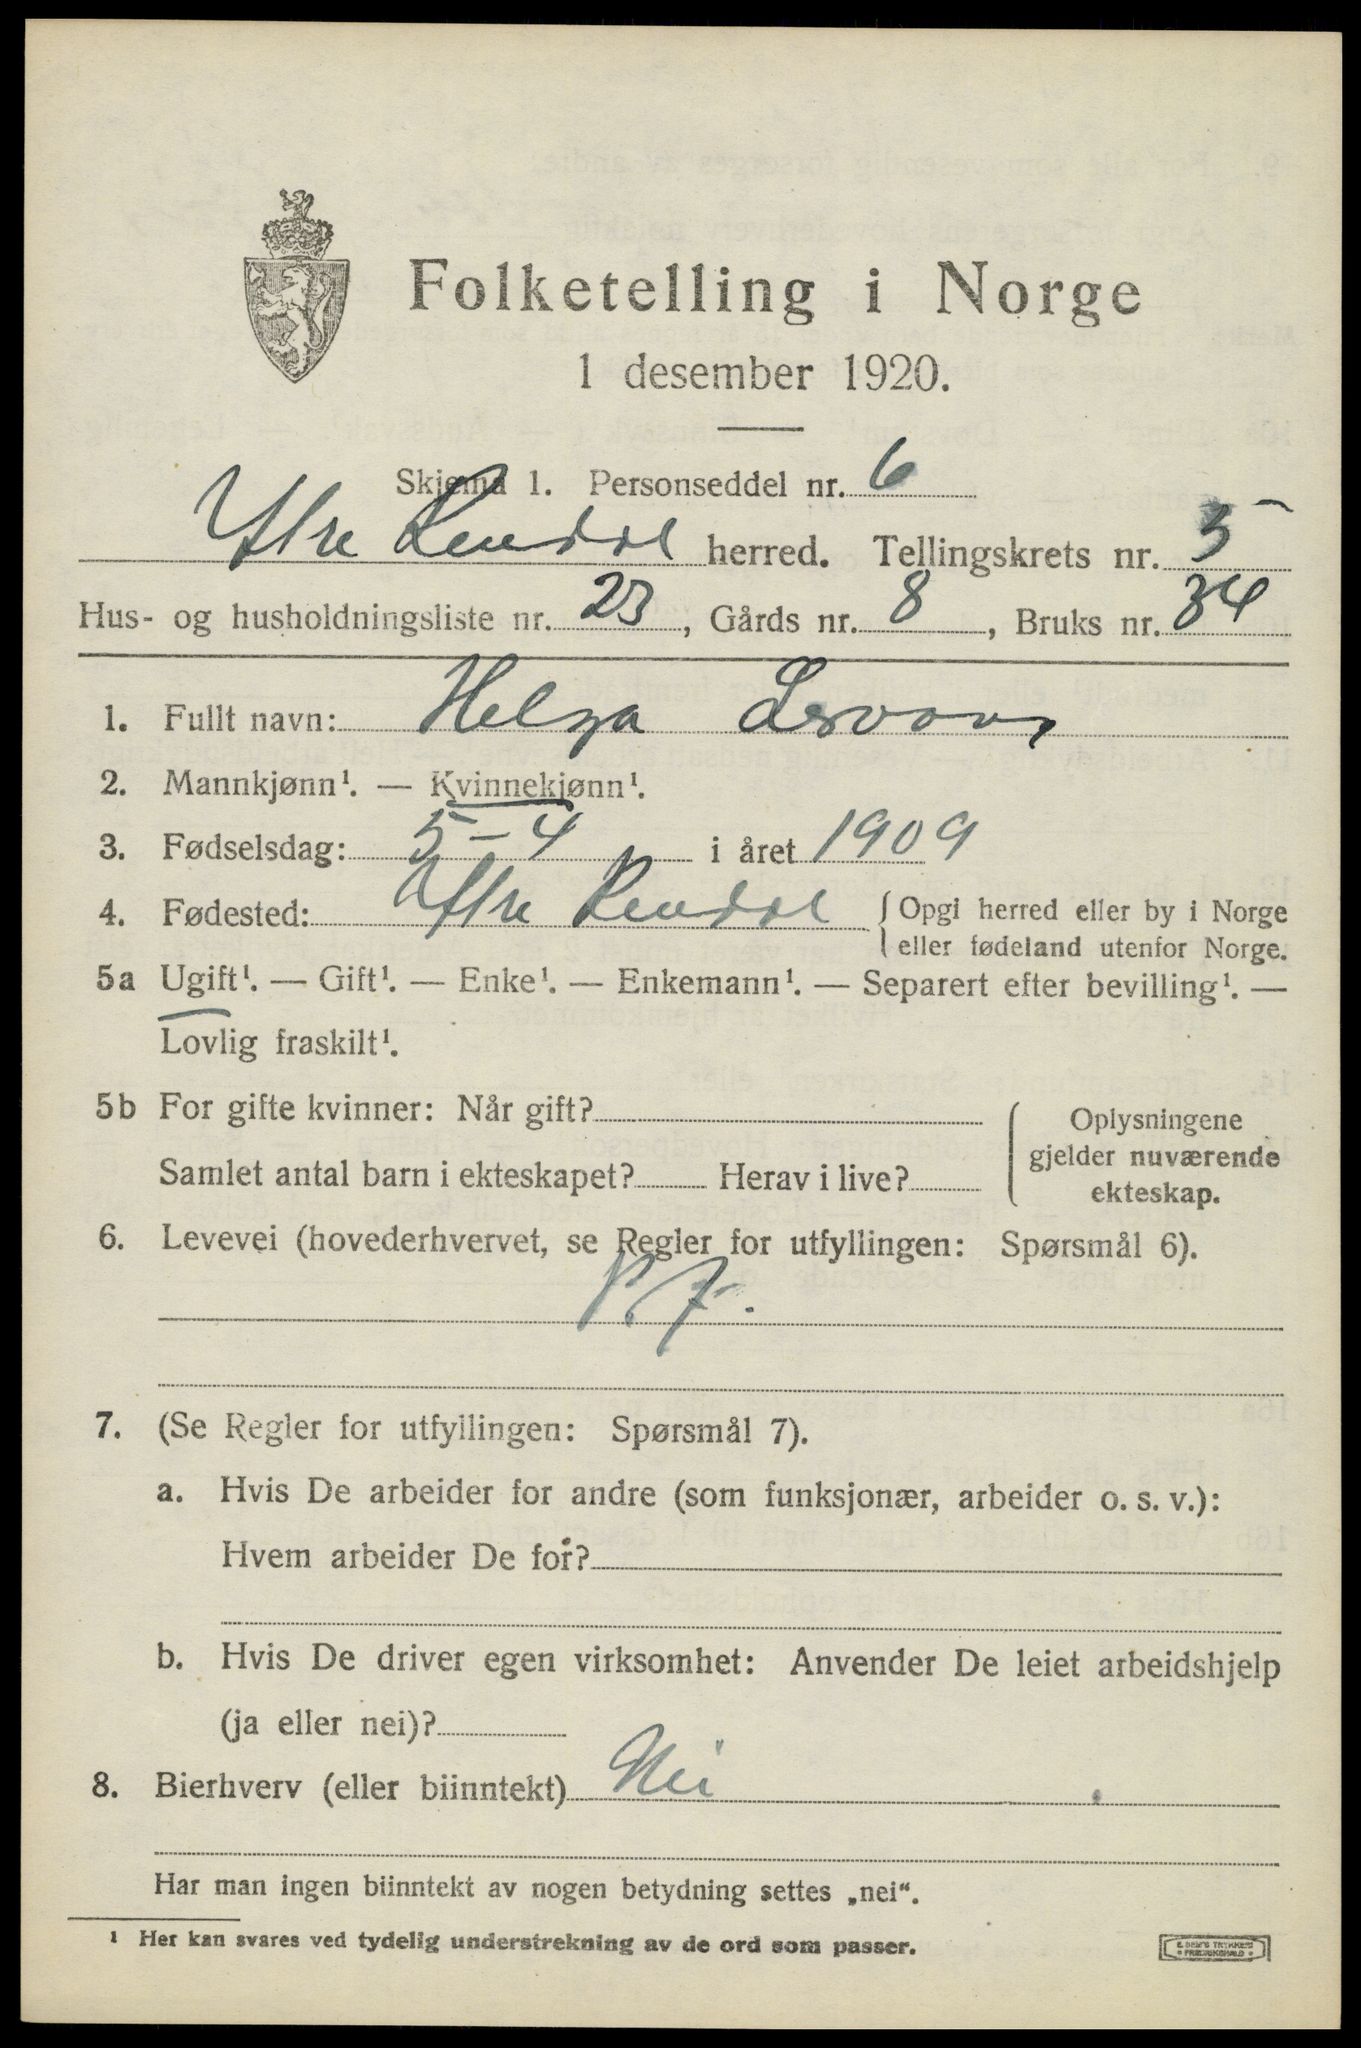 Folketelling i Norge
1 desember 1920.
Skjema 1. Personseddel nr. 6
Ytre Rendal herred. Tellingskrets nr. 5
Hus- og husholdningsliste nr. 23, Gårds nr. 8, Bruks nr. 34
1. Fullt navn: Helga
2. Mannkjønn¹. — Kvinnekjønn¹.
3. Fødselsdag: 5-4 i året 1909
4. Fødested: Ytre Rendal {Opgi herred eller by i Norge
eller fødeland utenfor Norge.
5a Ugift¹. — Gift¹. — Enke¹. — Enkemann¹. — Separert efter bevilling¹. —
Lovlig fraskilt¹.
5b For gifte kvinner: Når gift?
Samlet antal barn i ekteskapet? Herav i live?
Oplysningene
gjelder nuværende
ekteskap.
6. Levevei (hovederhvervet, se Regler for utfyllingen: Spørsmål 6).
7. (Se Regler for utfyllingen: Spørsmål 7).
a. Hvis De arbeider for andre (som funksjonær, arbeider o. s. v.):
Hvem arbeider De for?
b. Hvis De driver egen virksomhet: Anvender De leiet arbeidshjelp
(ja eller nei)?
8. Bierhverv (eller biinntekt) Nei
Har man ingen biinntekt av nogen betydning settes „nei“.
¹ Her kan svares ved tydelig understrekning av de ord som passer.